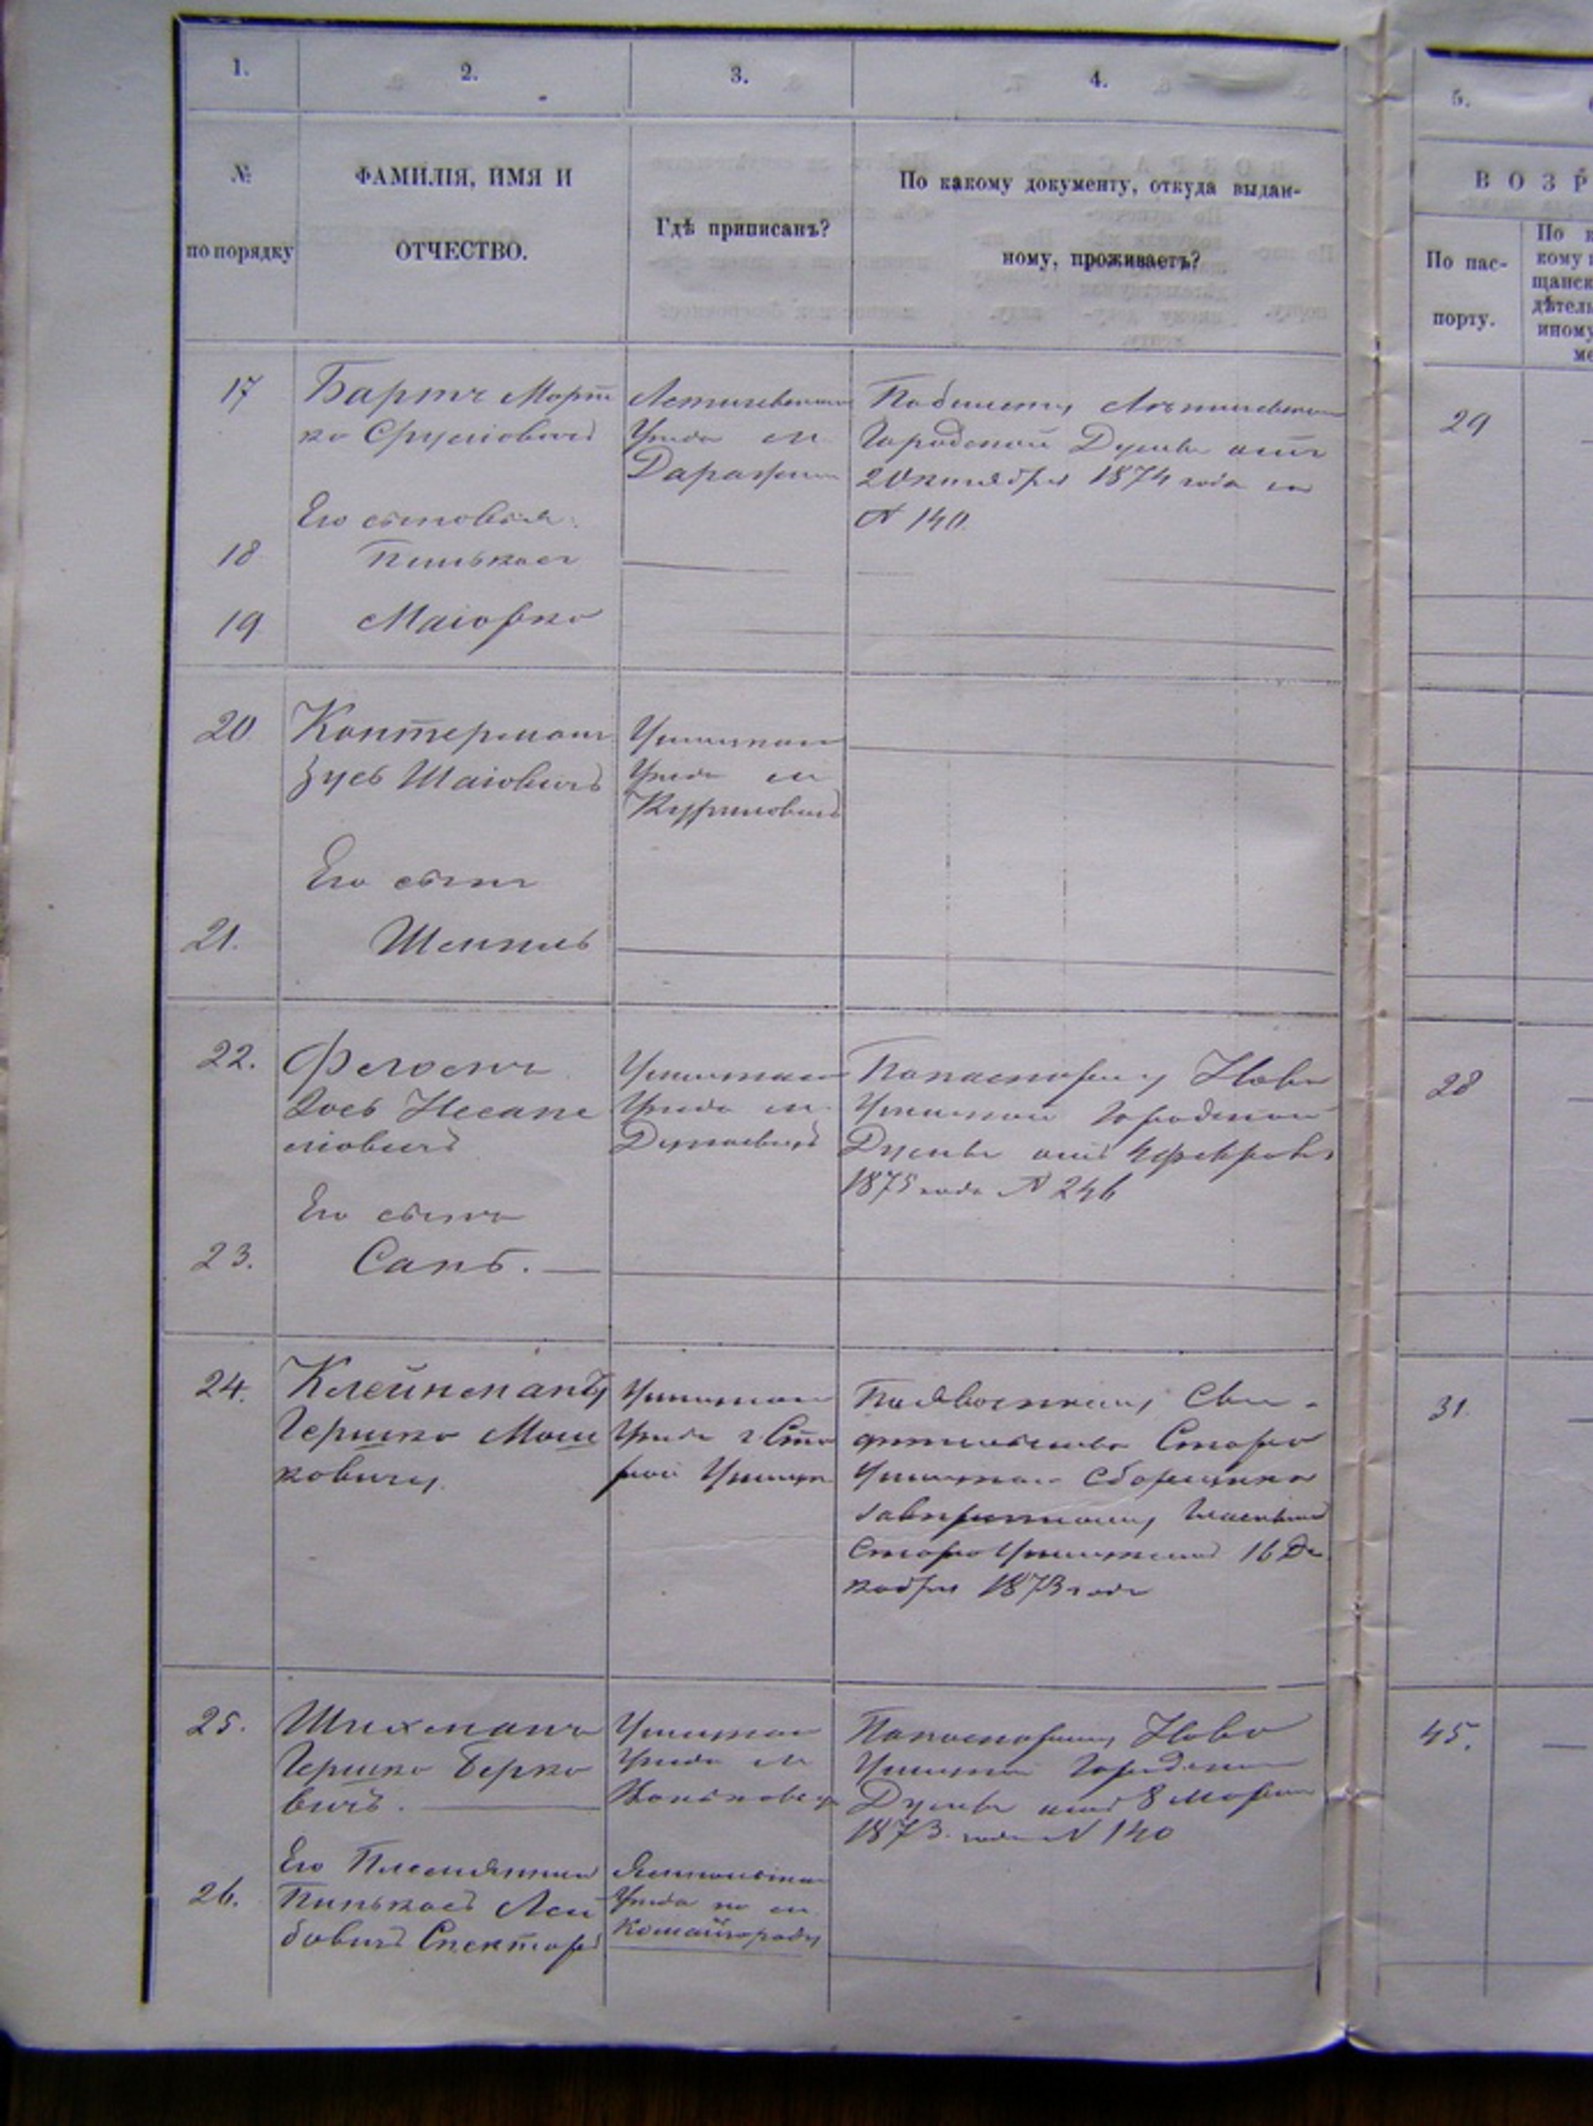 1.
2.
3.
4.
5.
№
по порядку
ФАМИЛІЯ, ИМЯ И
ОТЧЕСТВО.
Гдѣ приписанъ?
По какому документу, откуда выдан-
ному, проживаетъ?
ВОЗР
По пас-
порту.
По
кому
щанск
дѣтель
иному
ме
17
Бартъ Морт
ко Сруліовичъ
Летичевскаго
Уѣзда м
Деражни
Городской Думы отъ
2 Октября 1874 года за
№ 140.
29
Его сыновья:
18
Пинькасъ
19
Маіорко
20
Контерманъ
Зусь Шаіовичъ
Ушицкаго
Уѣзда м
Куриловецъ
Его сынъ
21.
Шмиль
22.
Фельсенъ
Ушицкаго
Уѣзда м
Дунаевецъ
По паспорту Ново
Ушицкой Городской
Думы отъ 4 феврал
1875 года № 246
28
Его сынъ
23.
24.
Клейнманъ
Гершко Мош
ковичъ
Ушицкаго
Уѣзда г Ста
рой Ушицы
Старо
Ушицкаго Сборщика
Старо Ушицкимъ 16 Де
кабря 1873 года
31
25.
Шихманъ
Гершко Берко
вичъ.
Ушицкаго
Уѣзда м
По паспорту Ново
Ушицкой Городской
Думы отъ 8 Марта
1873 года № 140
45.
26.
Его Племянникъ
Пинькасъ Лей
бовичъ Спекторъ
Ямпольскаго
Уѣзда по м
Комайгороду